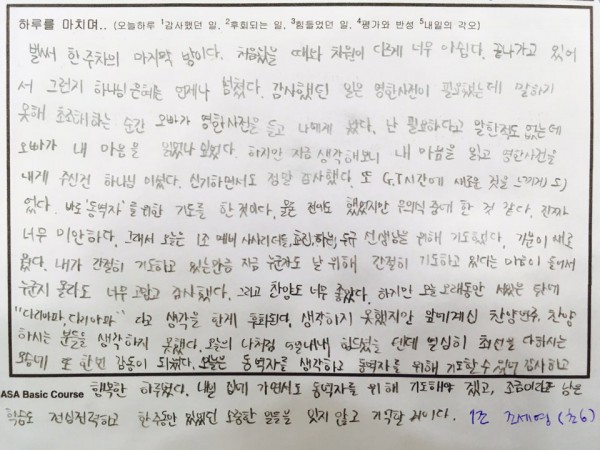 하루를 마치며.. (오늘하루 ¹감사했던 일, ²후회되는 일, ³힘들었던 일, ⁴평가와 반성 ⁵내일의 각오)
벌써 한 주차의 마지막 밤이다. 처음왔을 때와 차원이 다르게 너무 아쉽다. 끝나가고 있어
서 그런지 하나님 은혜는 언제나 넘쳤다. 감사했던 일은 영한사전이 필요했는데 말하기
못해 초조해하는 순간 오빠가 영한사전을 들고 나에게 왔다. 난 필요하다고 말한적도 없는데
오빠가 내 마음을 읽었나 보았다. 하지만 지금 생각해보니 내 마음을 읽고 영한사전을
내게 주신건 하나님 이셨다. 신기하면서도 정말 감사했다. 또 G.T시간에 새로운 것을 느끼게 되
었다. 바로 '동역자'를 위한 기도를 한 것이다. 물론 전에도 했었지만 무의식 중에 한 것 같다. 진짜
너무 미안하다. 그래서 오늘은 1조 멤버 선생님을 위해 기도했다. 기분이 새로
웠다. 내가 간절히 기도하고 있는만큼 지금 누군가도 날 위해 간절히 기도하고 있다는 마음이 들어서
누군지 몰라도 너무 고맙고 감사했다. 그리고 찬양도 너무 좋았다. 하지만 오늘 오래동안 서있은 탓에
"다리아파 다리아파" 라고 생각을 한게 후회된다. 생각하지 못했지만 앞에계신 찬양연주, 찬양
하시는 분들을 생각하지 못했다. 오늘의 나처럼 힘드셨을 텐데 열심히 최선을 다하시는
모습에 또 한번 감동이 되셨다. 오늘은 동역자를 생각하고 동역자를 위해 기도할 수 있어 감사하고
ASA Basic Course 행복한 하루였다. 내일 집에 가면서도 동역자를 위해 기도해야 겠고, 조금이라도 남은
학습도 전심전력하고 한주동안 있었던 소중한 일들을 잊지 않고 기억할 것이다. 1조 조세영 (초6)